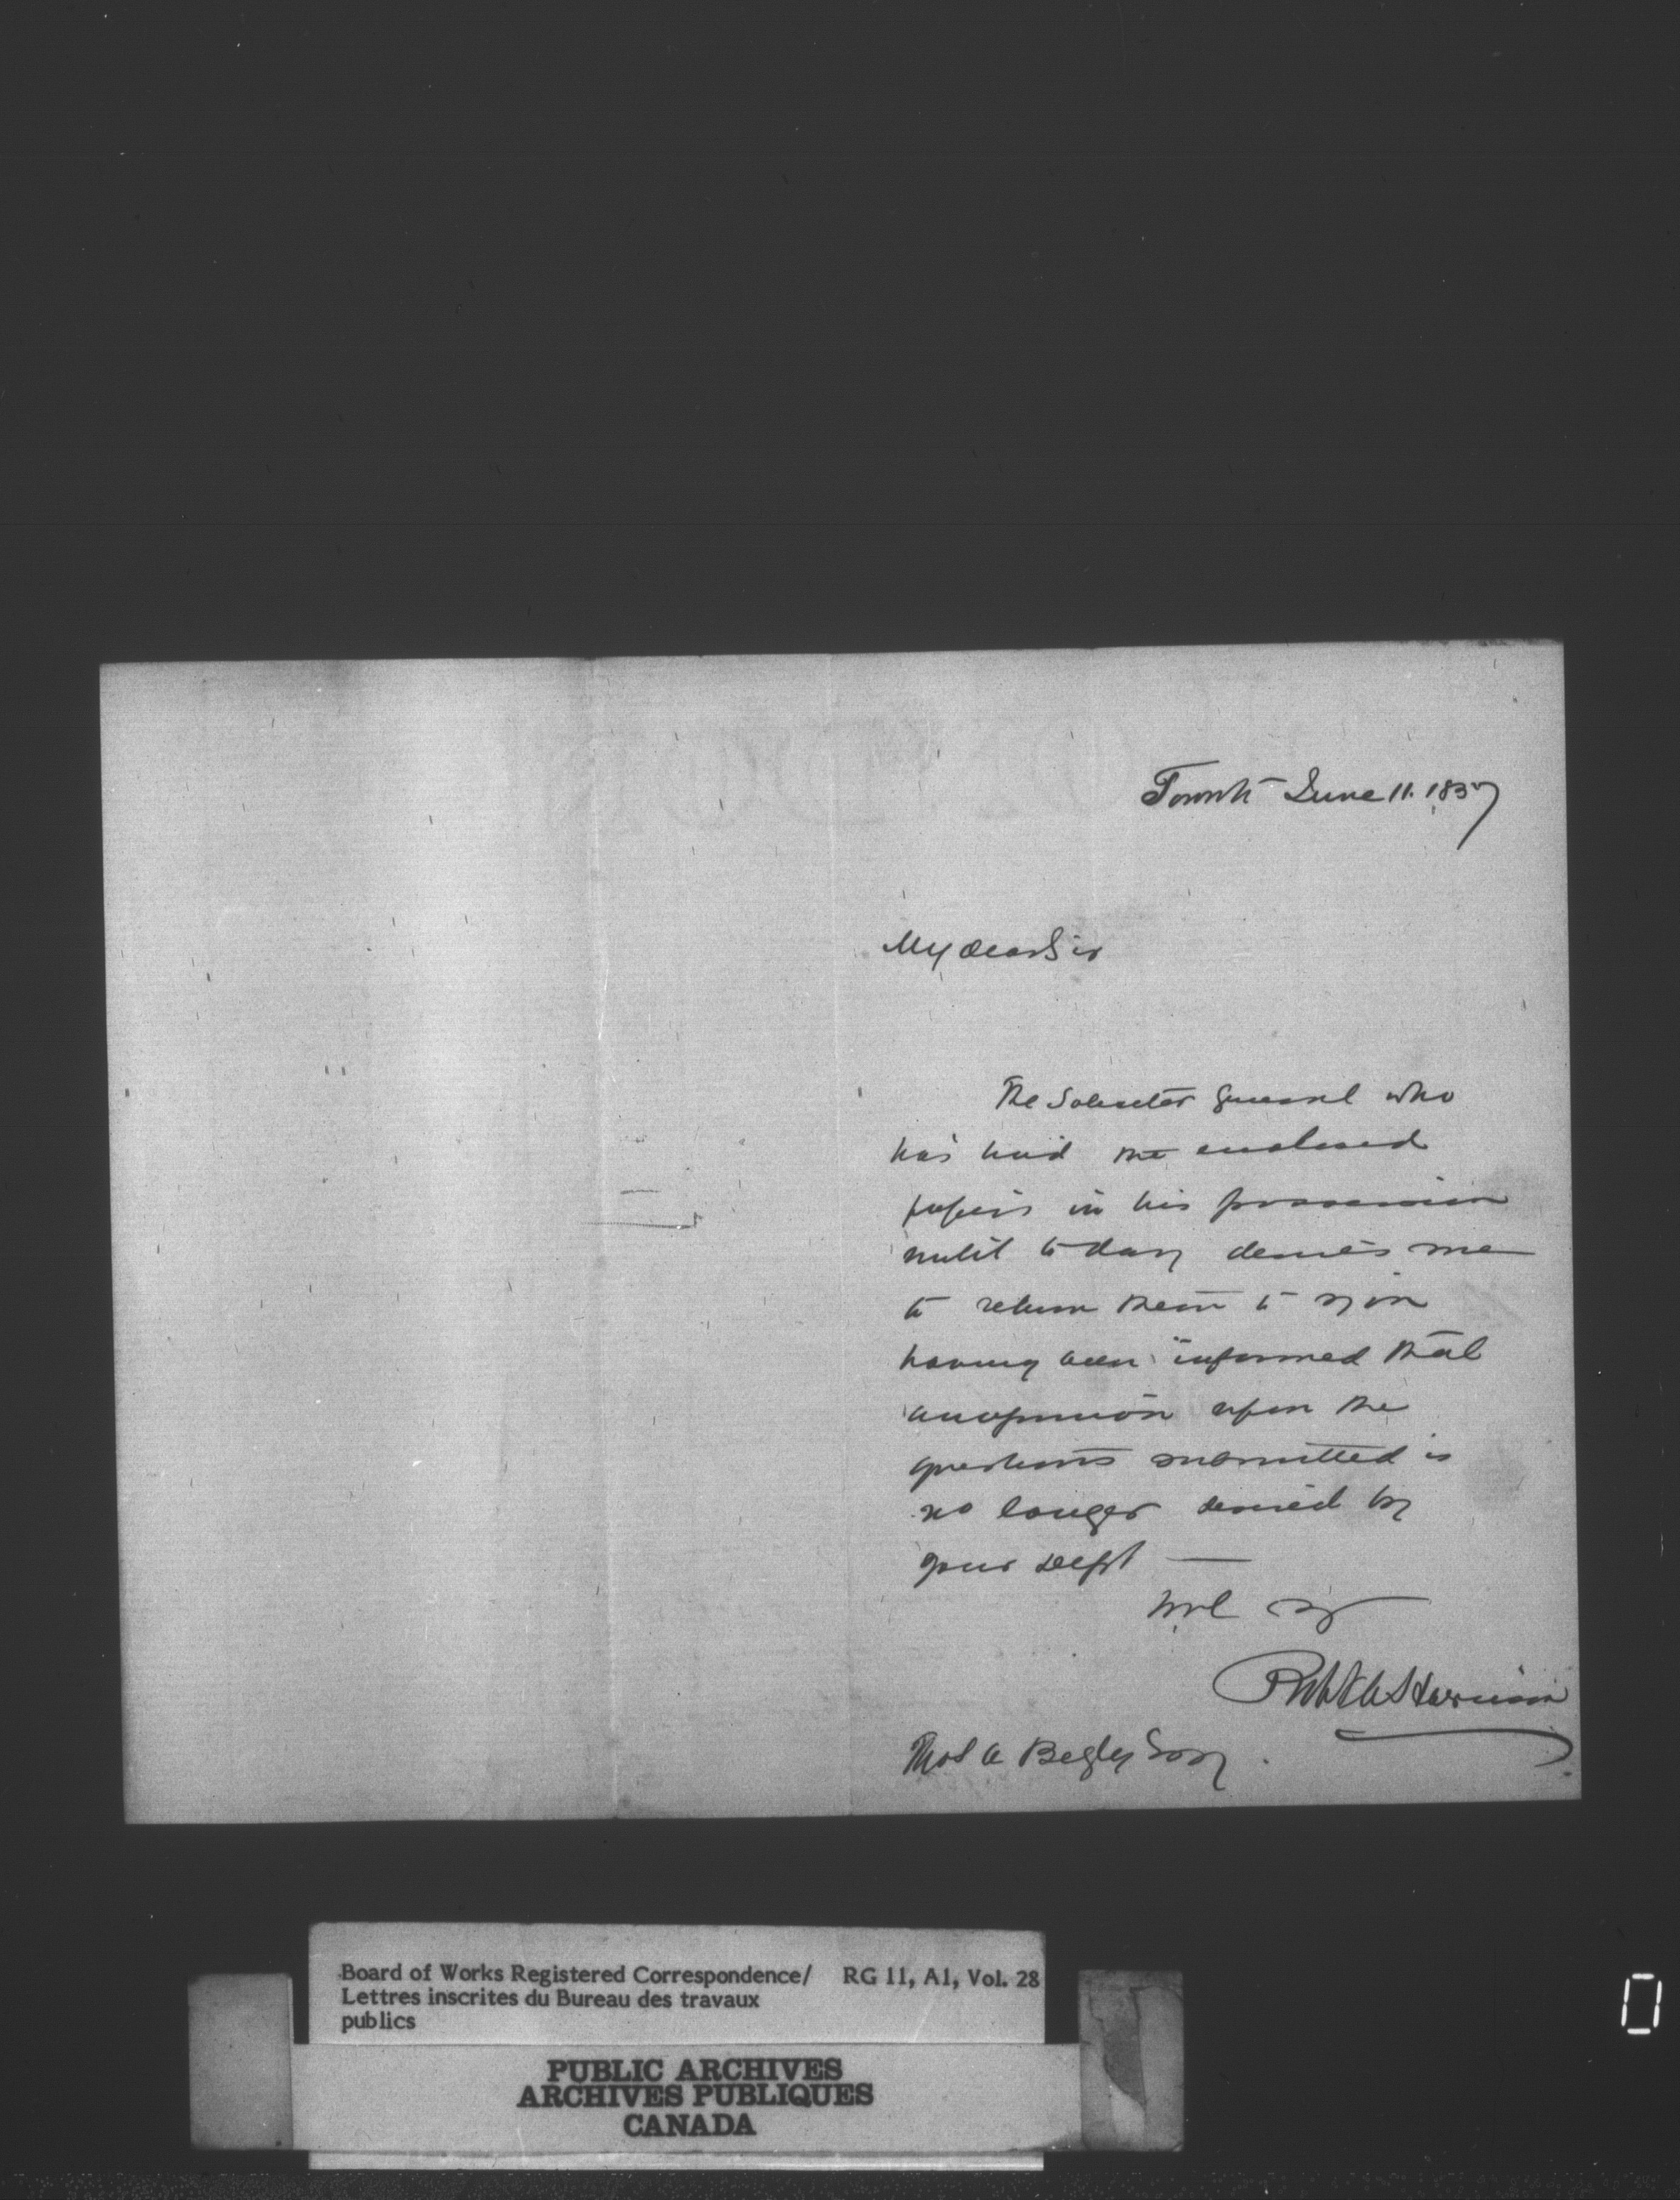 Toronto June 11. 1857
My dear Sir
The Solicitor General who
has had the enclosed
papers in his possession
until to day desires me
to return them to you
having been informed that
an opinion upon the
questions submitted is
no longer desired by
your Dept —
Robt A Harrison
Thos A Begley Esq.
Board of Works Registered Correspondence/ RG 11, A1, Vol. 28
Lettres inscrites du Bureau des travaux
publics
PUBLIC ARCHIVES
ARCHIVES PUBLIQUES
CANADA